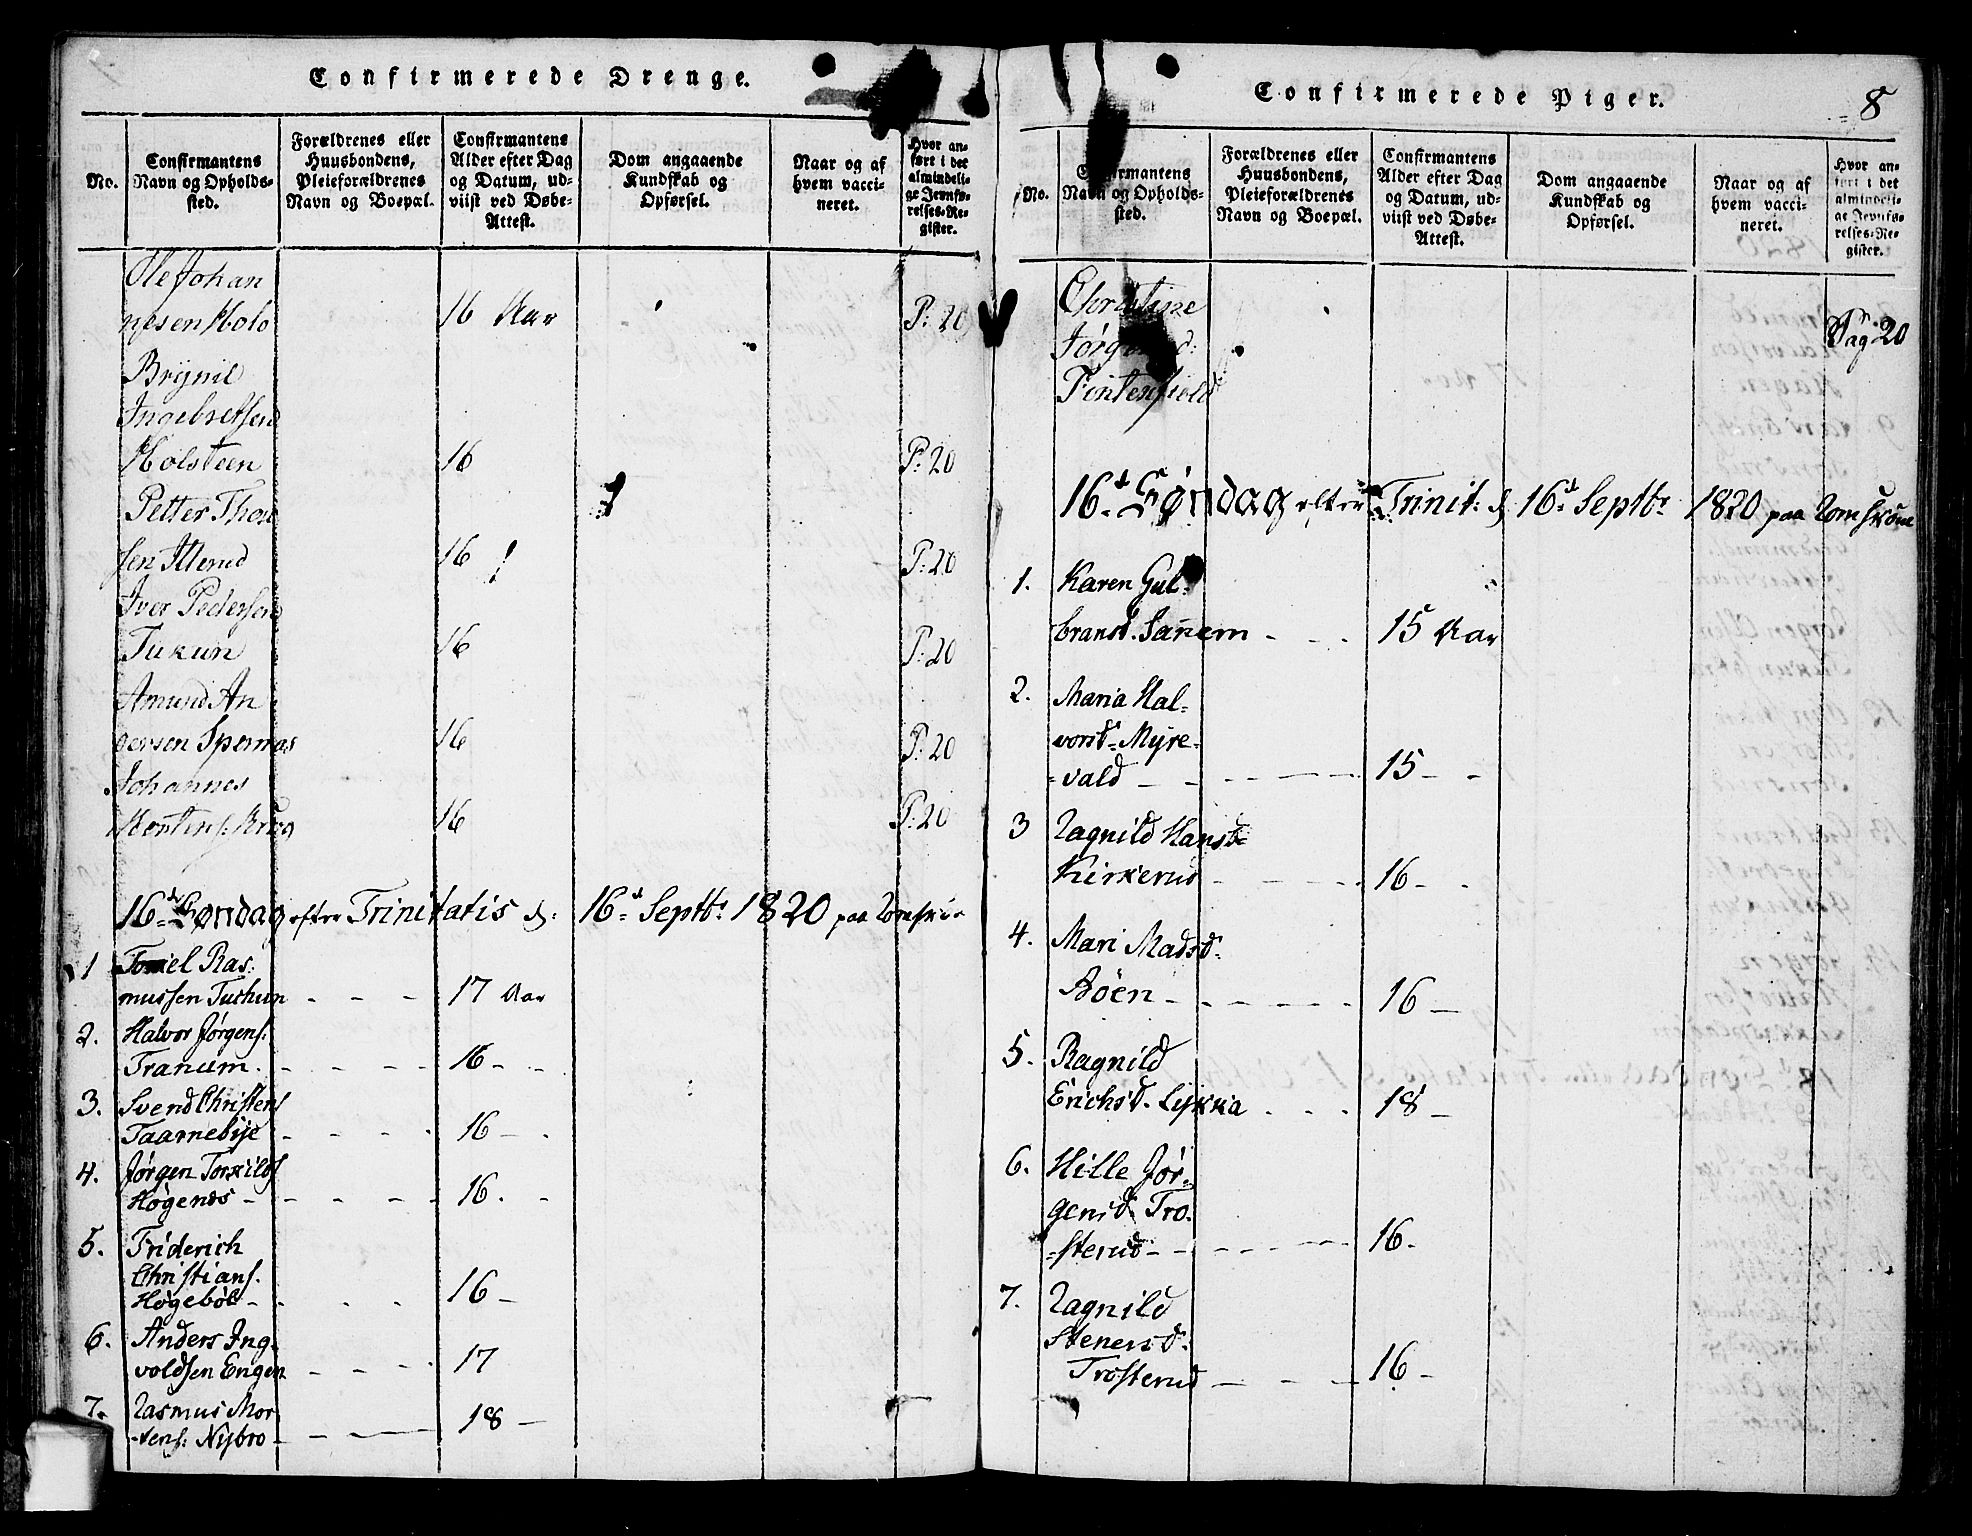 Confirmerede Drenge.
No.
Confirmantens Navn og Opholds-sted.
Forældrenes eller Huusbondens, Pleieforældrenes Navn og Boepæl.
Confirmantens Alder efter Dag og Datum, ud-viist ved Døbe-Attest.
Dom angaaende Kundskab og Opførsel.
Naar og af hvem vacci-neret.
Hvor an-ført i det almindeli-ge Jevnfø-relses-Re-gister.
Ole Johan
nesen Holo 16 Aar P: 20
Brynil
Ingebretsen
Holsteen 16 P: 20
Petter Thor
sen Illerud 16 P: 20
Iver Pedersen
Tukun 16 P: 20
Amund An
dersen Spernæs 16 P: 20
Johannes
Mortens: Krog 16 P: 20
16d Søndag efter Trinitatis d: 16d Septbr 1820 paa
1 Tomel Ras:
mussen Tuchun - - - 17 Aar
2. Halvor Jørgens:
Tranum. - - - - 16 - -
3. Svend Christens
Taarnebye - - - - 16 - -
4. Jørgen Torkilds
Høgends - - - - 16. -
5. Friderich
Christians.
Høgeböl - - - - 16 -
6. Anders Ing-
voldsen Engen - - - 17
7. Rasmus Mor
-tens: Nybro - - - 18 -
Confirmerede Piger.
8
No.
Confirmantens Navn og Opholds-sted.
Forældrenes eller Huusbondens, Pleieforældrenes Navn og Boepæl.
Confirmantens Alder efter Dag og Datum, ud-viist ved Døbe-Attest.
Dom angaaende Kundskab og Opførsel.
Naar og af hvem vacci-neret.
Hvor an-ført i det almindeli-ge Jevnfø-relses-Re-gister.
Christine Pag. 20
16d Søndag efter Trinit: d 16d Septbr 1820 paa
1. Karen Gul-
bransd. Sanem - - - 15 Aar
2. Maria Hal-
vorsd- Myre-
-vald - - - - - 15 - -
3 Ragnild Hansd-
Kirkerud - - - 16 - -
4. Mari Madsd.
Böen - - - - 16 -
5. Ragnild
Erichsd. Lykka - - - 18 -
6. Hille Jør-
gensd. Tro-
-sterud - - - - 16 -
7. Ragnild
Stenersd:
Trosterud - - - 16 -